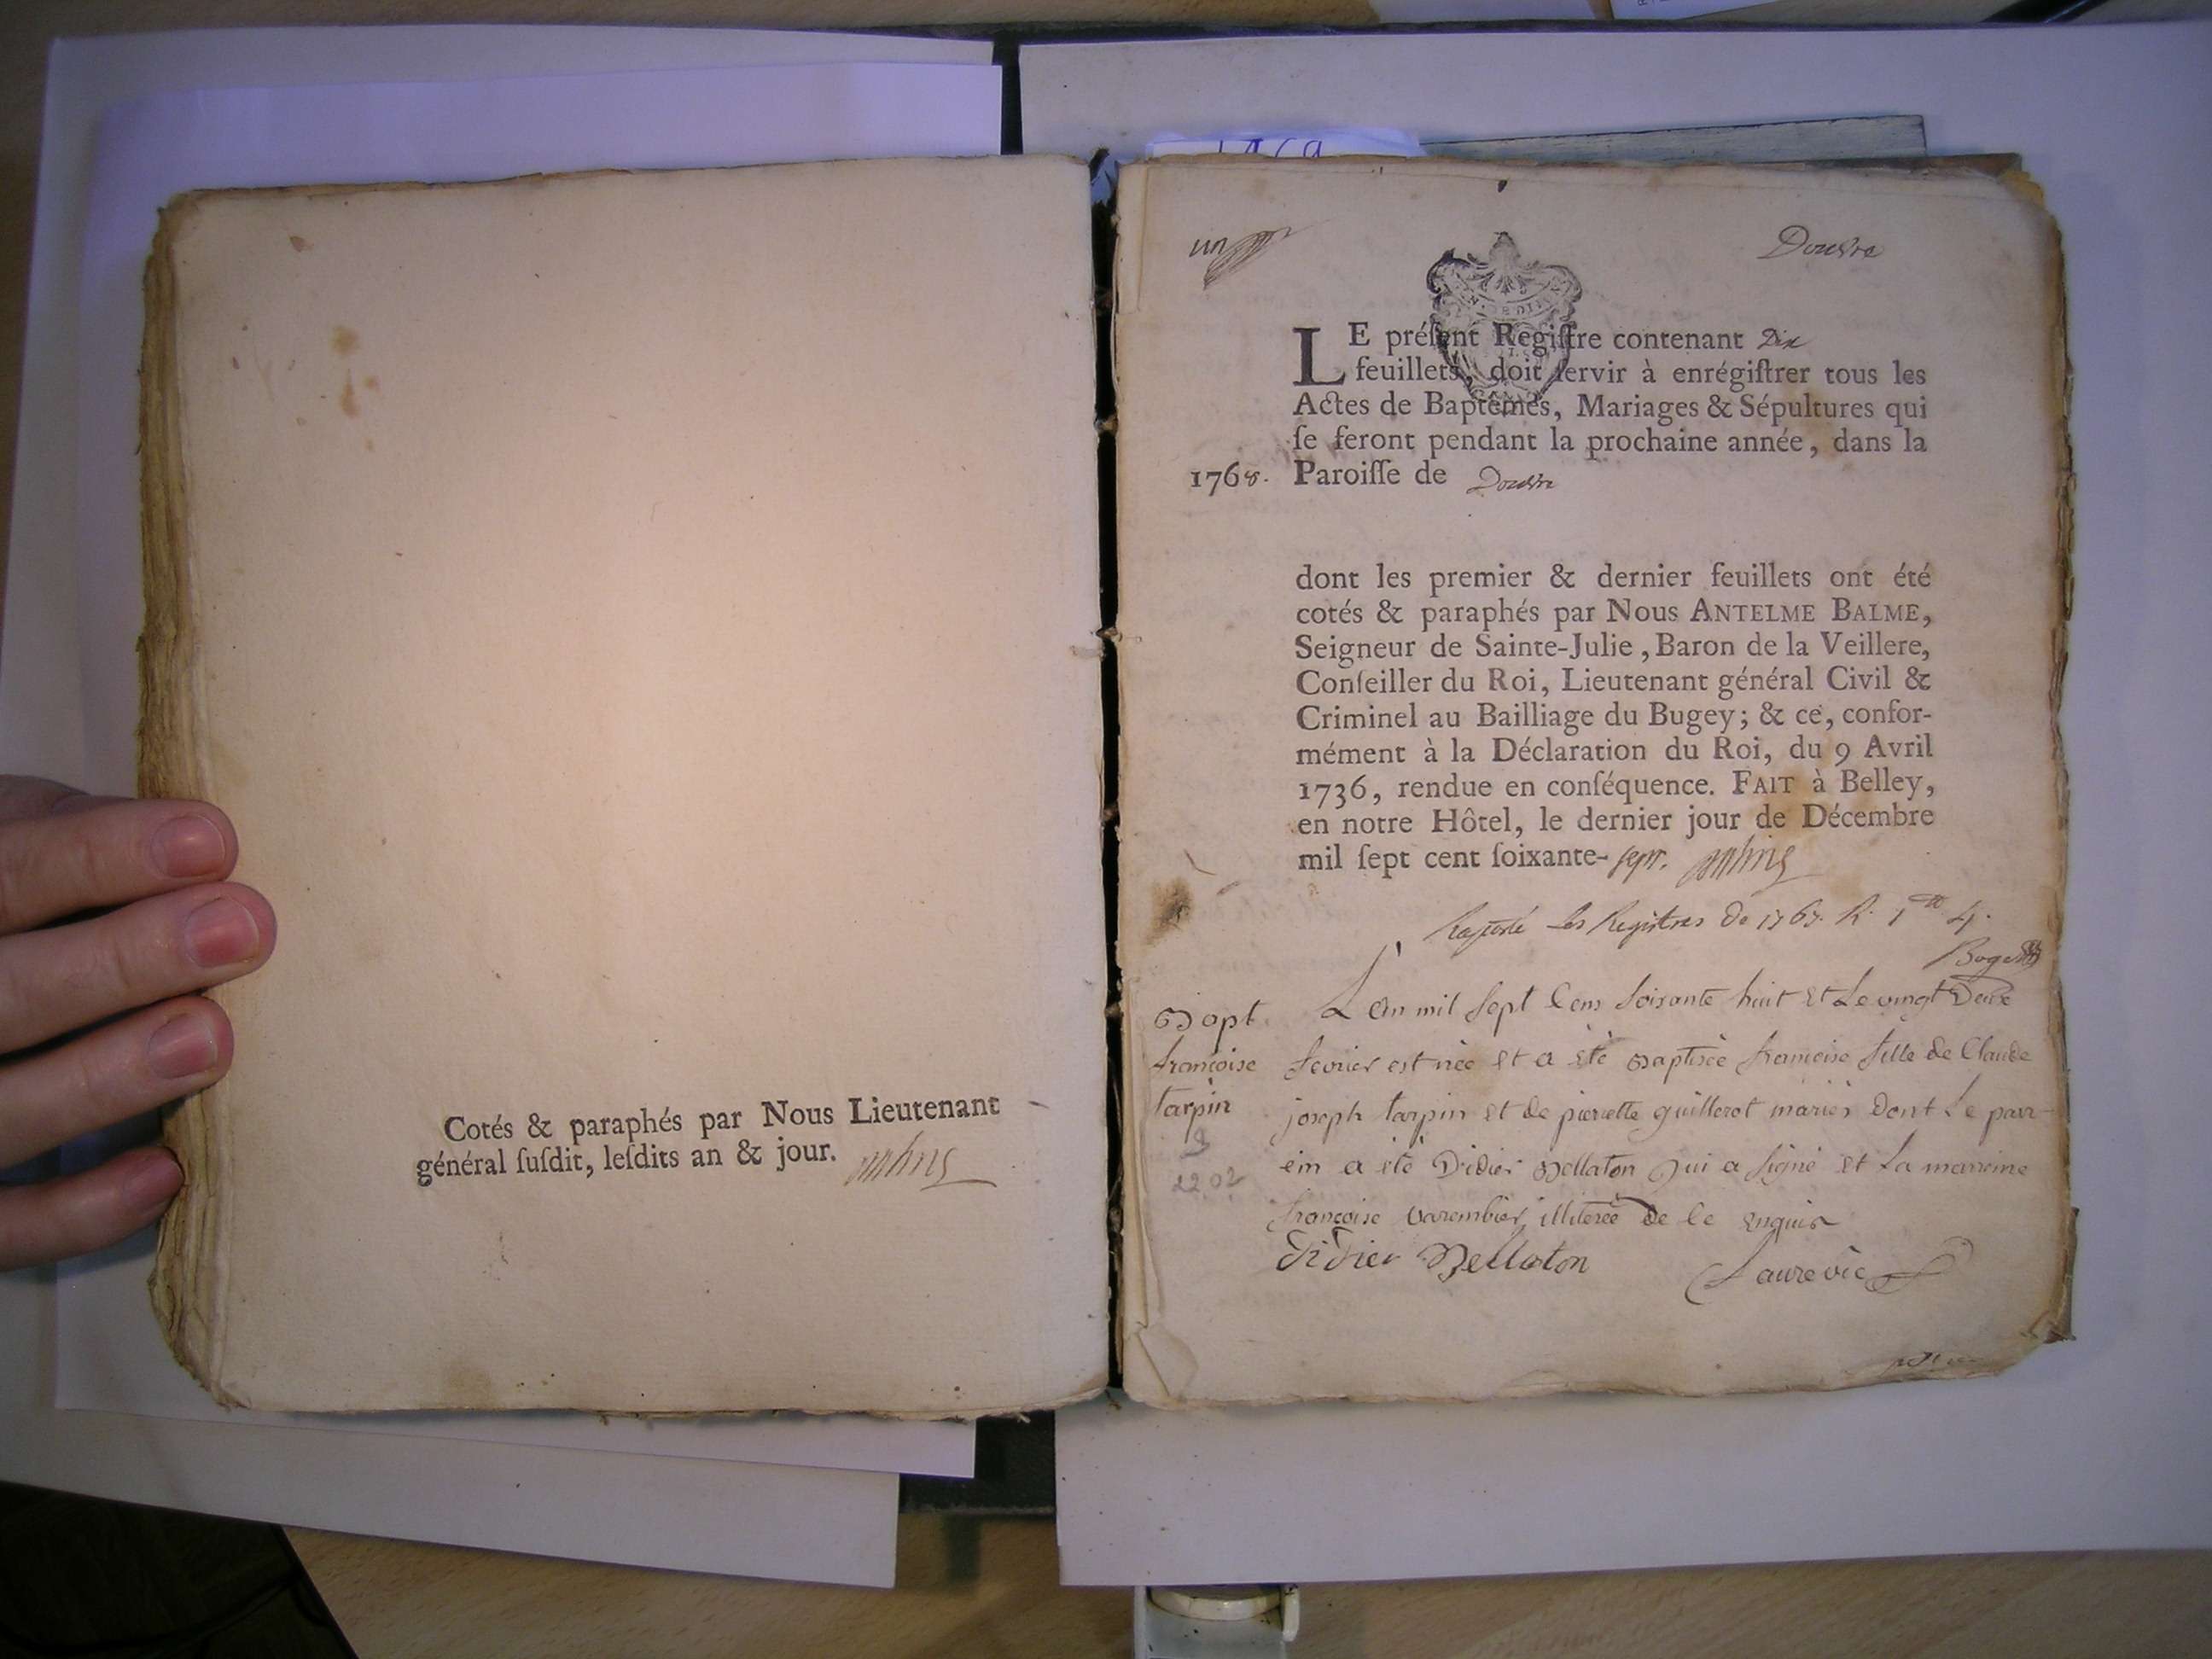 Cotés & paraphés par Nous Lieutenant
général ſuſdit, leſdits an & jour.
un
Douvre
LE préſent Regiſtre contenant Dix
feuillets, doit ſervir à enrégiſtrer tous les
Actes de Baptêmes, Mariages & Sépultures qui
ſe feront pendant la prochaine année, dans la
1768. Paroiſſe de Douvre
dont les premier & dernier feuillets ont été
cotés & paraphés par Nous ANTELME BALME,
Seigneur de Sainte-Julie, Baron de la Veillere,
Conſeiller du Roi, Lieutenant général Civil &
Criminel au Bailliage du Bugey; & ce, confor-
mément à la Déclaration du Roi, du 9 Avril
1736, rendue en conſéquence. FAIT à Belley,
en notre Hôtel, le dernier jour de Décembre
mil ſept cent ſoixante- sept.
Les Registres de 1767. R.
Bapt.
francoise
tarpin
2202
L'an mil sept Cens soixante huit et Le vingt Deux
fevrier est née et a été Baptisée francoise fille de Claude
joseph tarpin et de pierrette guillerot mariés Dont Le parr-
ein a été Didier Bellaton qui a signé et La marreine
francoise Varembier illiterée de ce enquis
Didier Bellaton